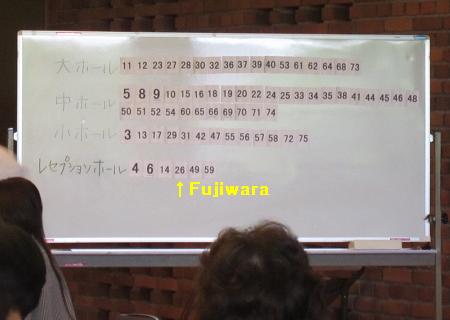 大ホール 11 12 23 27 28 30 32 36 37 39 40 53 61 62 64 68 73
中ホール 5 8 9 10 15 16 18 19 20 22 24 25 33 34 35 38 41 44 45 46 48
50 51 52 54 60 65 66 69 70 71 74
小ホール 3 13 17 29 31 42 47 55 56 57 58 72 75
レセプションホール 4 6 14 26 49 59
↑Fujiwara